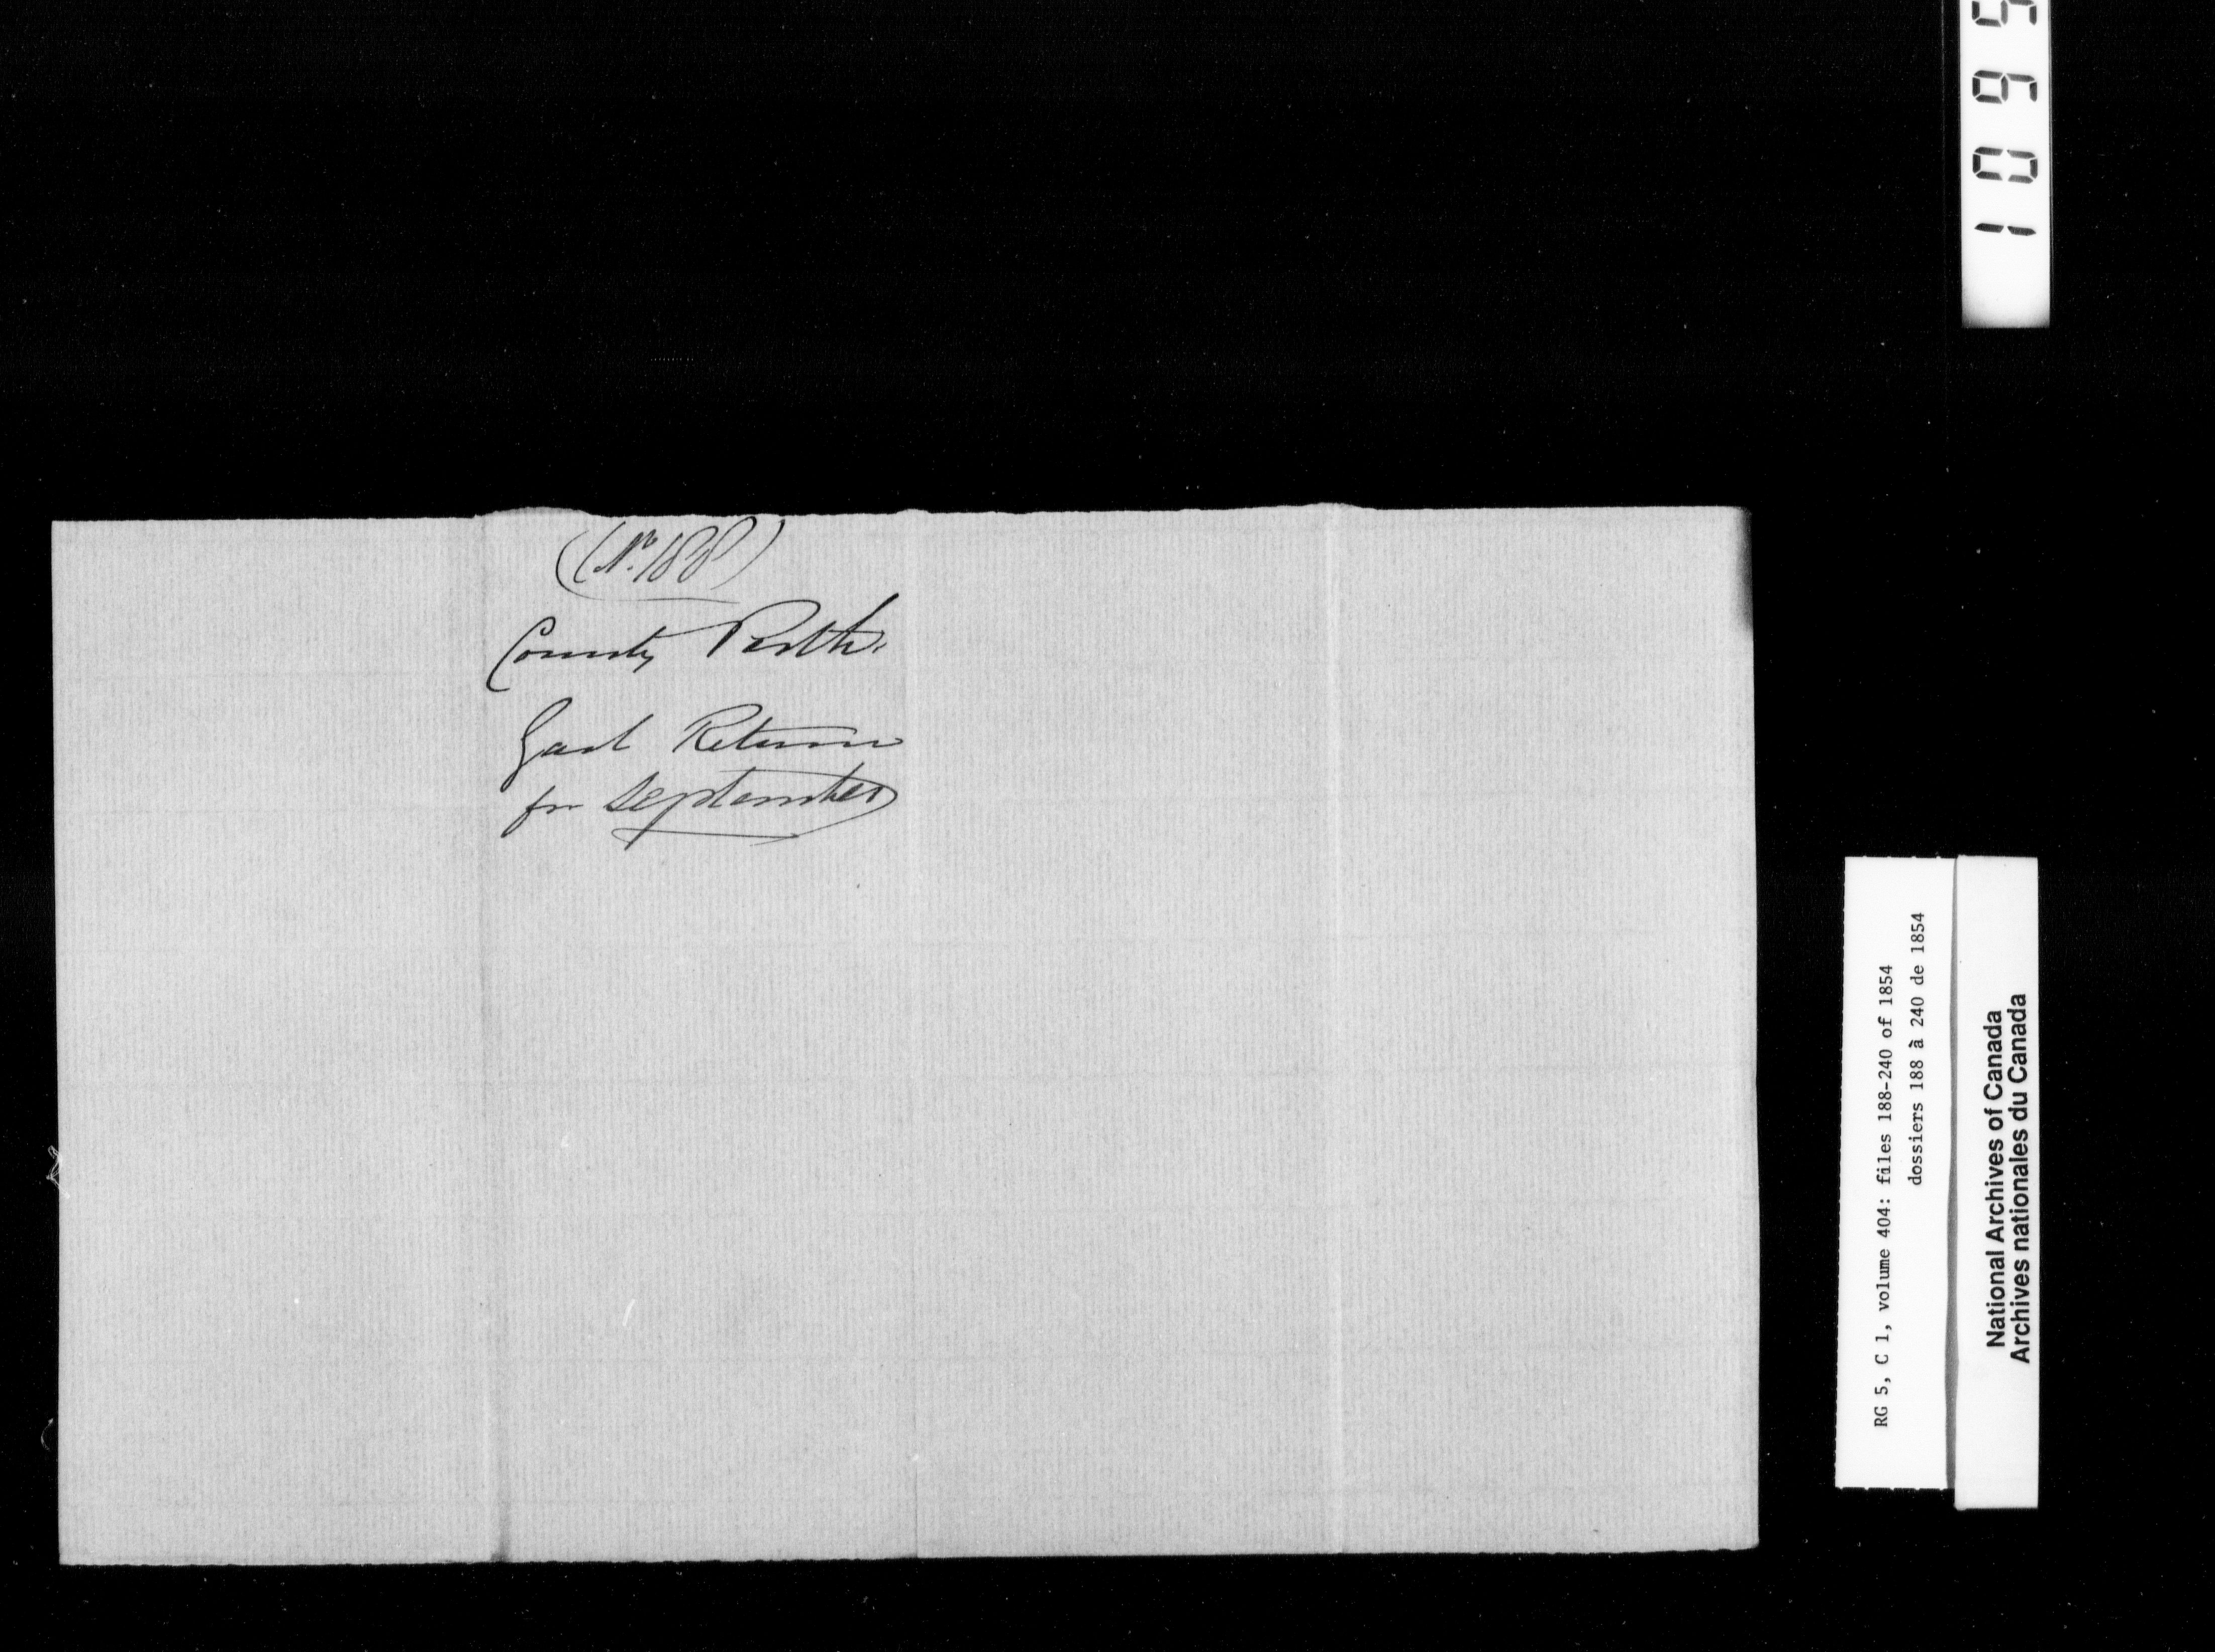 (No. 188)
County Perth.
Gaol Return
for September
1095
RG 5, C 1, volume 404: files 188-240 of 1854
dossiers 188 à 240 de 1854
National Archives of Canada
Archives nationales du Canada